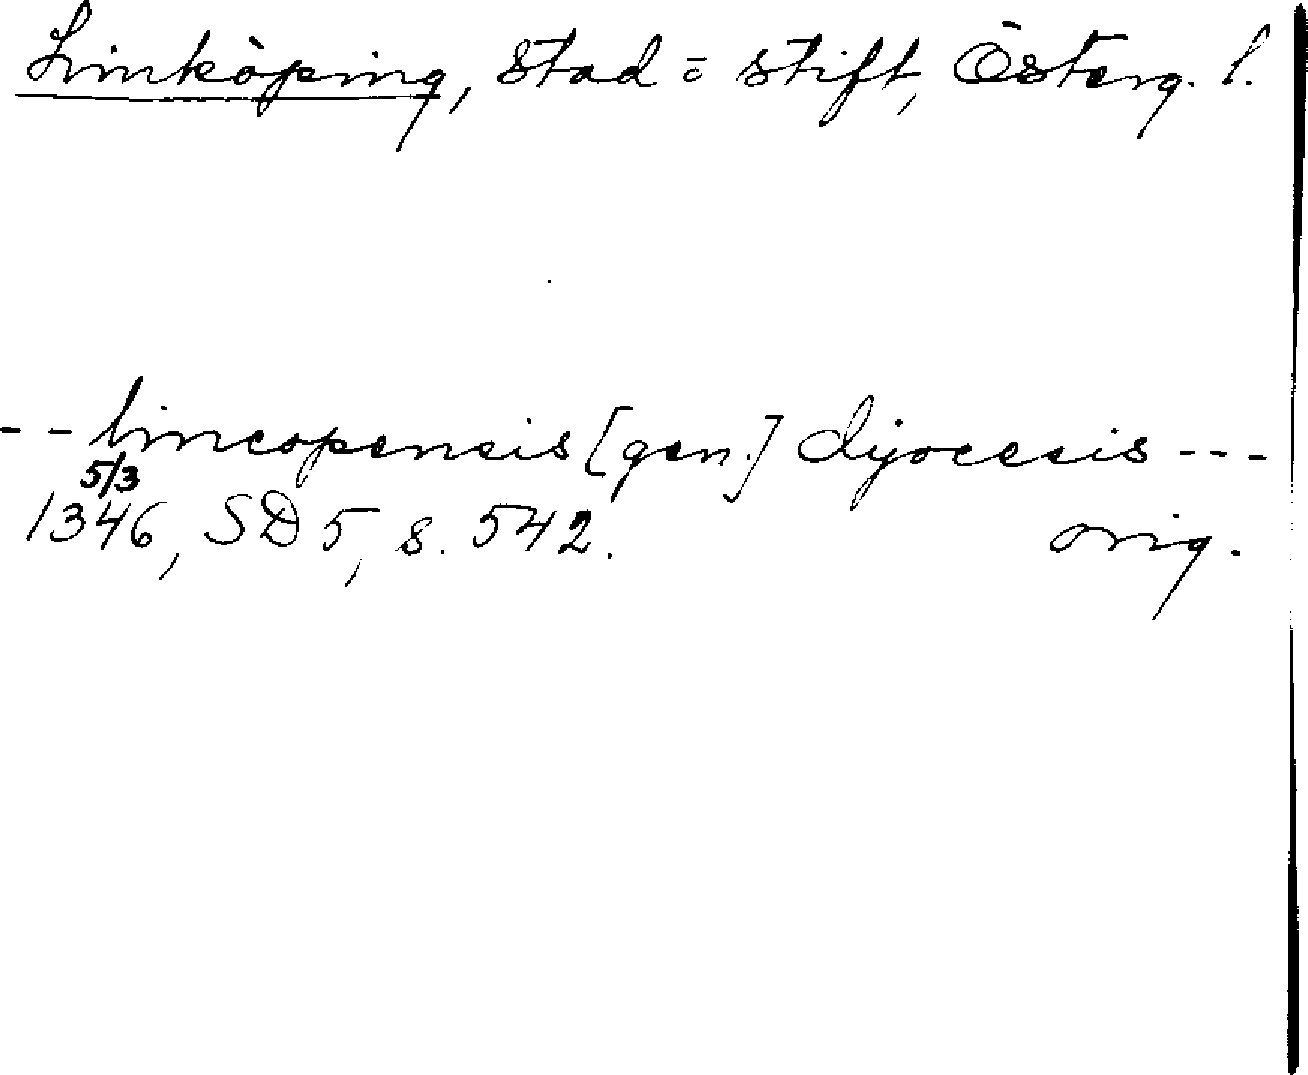 Linköping, stad o stift, Österg. l.
-- lincopensis [gen.] dyocesis ---
5/3
1346, SD 5, s. 542. orig.